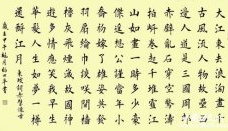 大江東去浪淘盡千
古風流人物故壘西
邊人道是三國周郎
赤壁亂石崩雲驚濤
拍岸捲起千堆雪江
山如畫一時多少豪
傑遙想公瑾當年小
喬初嫁了雄姿英發
羽扇綸巾談笑間檣
櫓灰飛煙滅故國神
遊多情應笑我早生
華髮人生如夢一樽
還酹江月 東坡詞赤壁懷古